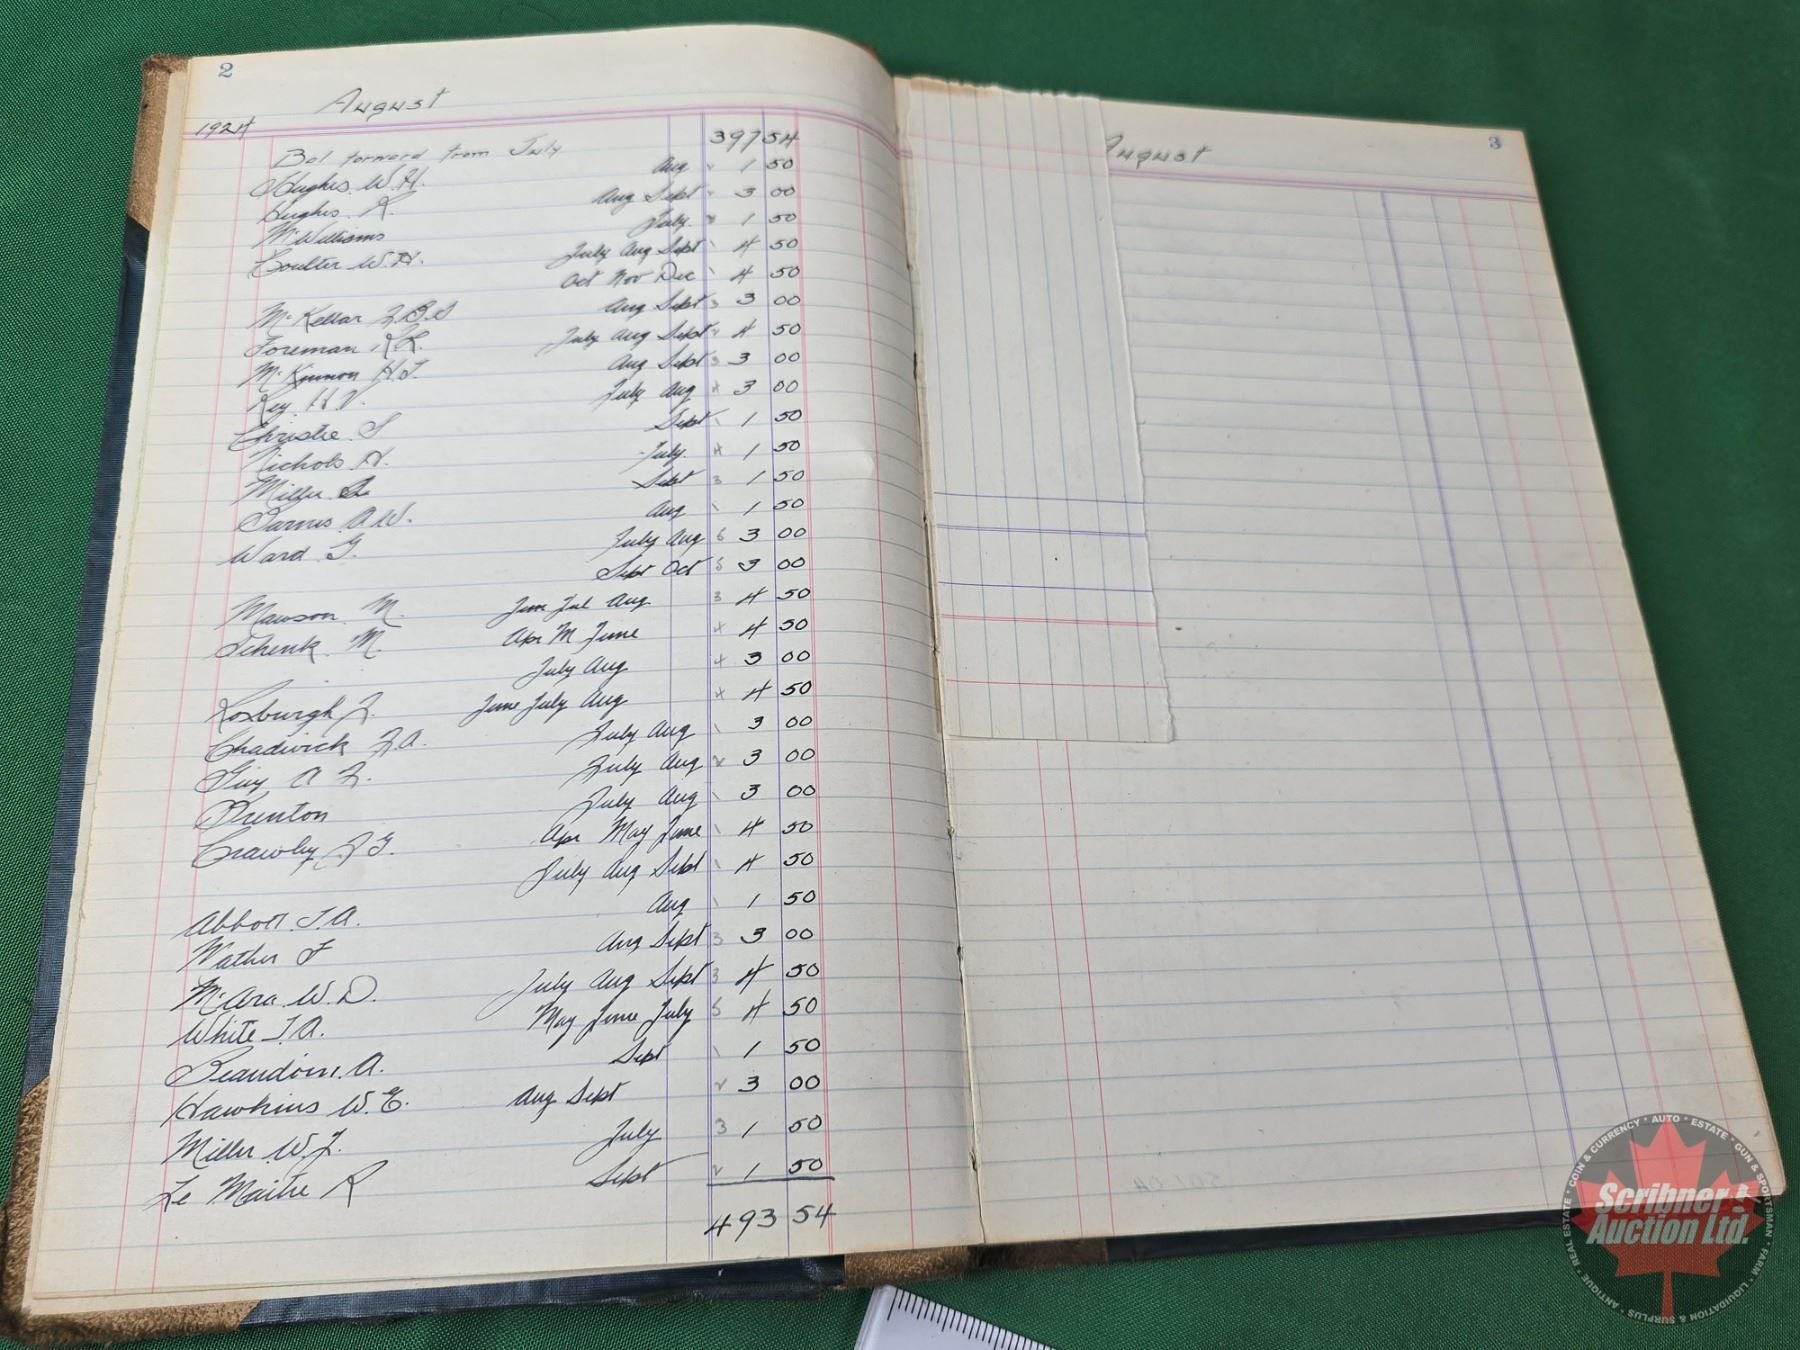 2
August
1924
Bal forward from July 397 54
Hughes. W. H. Aug 1 50
Hughes. R. Aug Sept 3 00
McWilliams July. 1 50
Coulter W. H. July Aug Sept 4 50
Oct Nov Dec 4 50
McKellar F. B. S Aug Sept 3 3 00
Foreman. R L. July Aug Sept 4 50
McKinnon H. J. Aug Sept 3 3 00
Key. H V. July Aug 4 3 00
Christie. S Sept 1 50
Nichols. H. July. 4 1 50
Miller Sept 3 1 50
A. W. Aug 1 50
Ward. G. July Aug 6 3 00
Sept Oct 5 3 00
Mawson. M. Jun Jul Aug 3 4 50
Schenk. M. Apr M June 4 4 50
July Aug 4 3 00
Roxburgh F. June July Aug 4 4 50
Chadwick F. A. July Aug 3 00
Guy A F. July Aug 3 00
Brenton July Aug 3 00
Crawley F G. Apr May June 4 50
July Aug Sept 4 50
Abbott J. A. Aug 1 50
Wather F Aug Sept 3 3 00
McAra. W. D. July Aug Sept 3 4 50
White J. A. May June July 5 4 50
Beaudoin. A. Sept 1 50
Hawkins W. E. Aug Sept 3 00
Miller W. J. July 3 1 50
Le Maitre R Sept 1 50
493 54
August
3
Scribner
Auction Ltd.
COIN & CURRENCY • AUTO • ESTATE • GUN & SPORTSMAN • FARM • LIQUIDATION & SURPLUS • ANTIQUE • REAL ESTATE